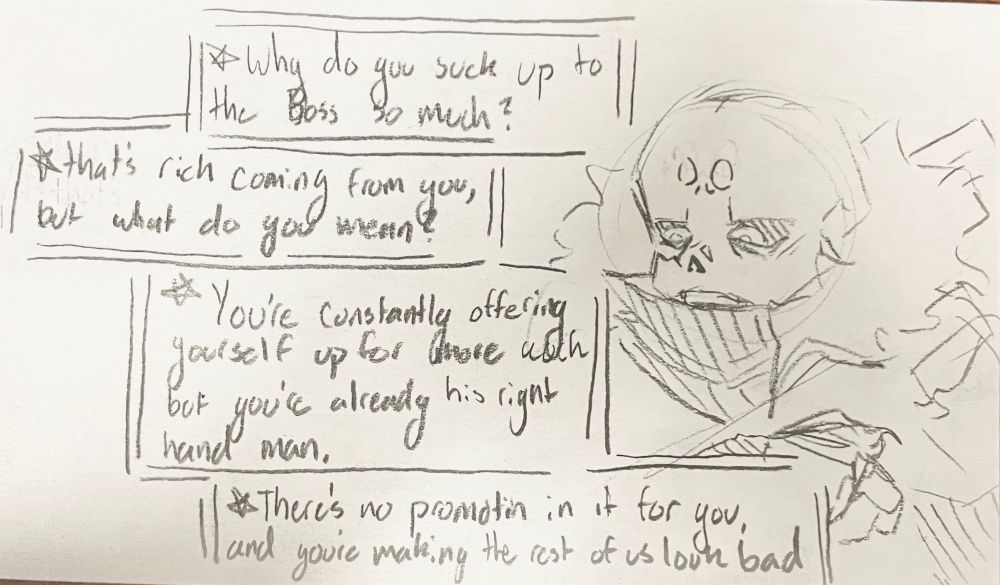 ☆Why do you suck up to
the Boss so much?
☆that's rich coming from you,
but what do you mean?
☆ You're constantly offering
yourself up for more work
but you're already his right
hand man.
☆There's no promotin in it for you,
and you're making the rest of us look bad